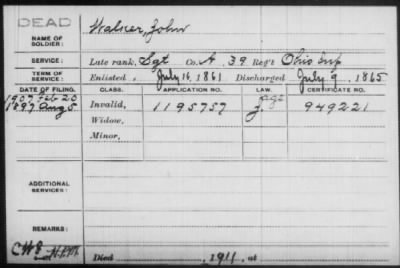 DEAD
NAME OF SOLDIER: Walker, John
SERVICE: Late rank, Sgt Co. A, 39 Reg't Ohio Inf
TERM OF SERVICE: Enlisted July 16, 1861 Discharged July 9, 1865
DATE OF FILING. CLASS. APPLICATION NO. LAW. CERTIFICATE NO.
1907 Feb 25 age
1897 Aug 5 Invalid, 1195757 949221
Widow,
Minor,
ADDITIONAL SERVICES:
REMARKS:
Died , 1911, at